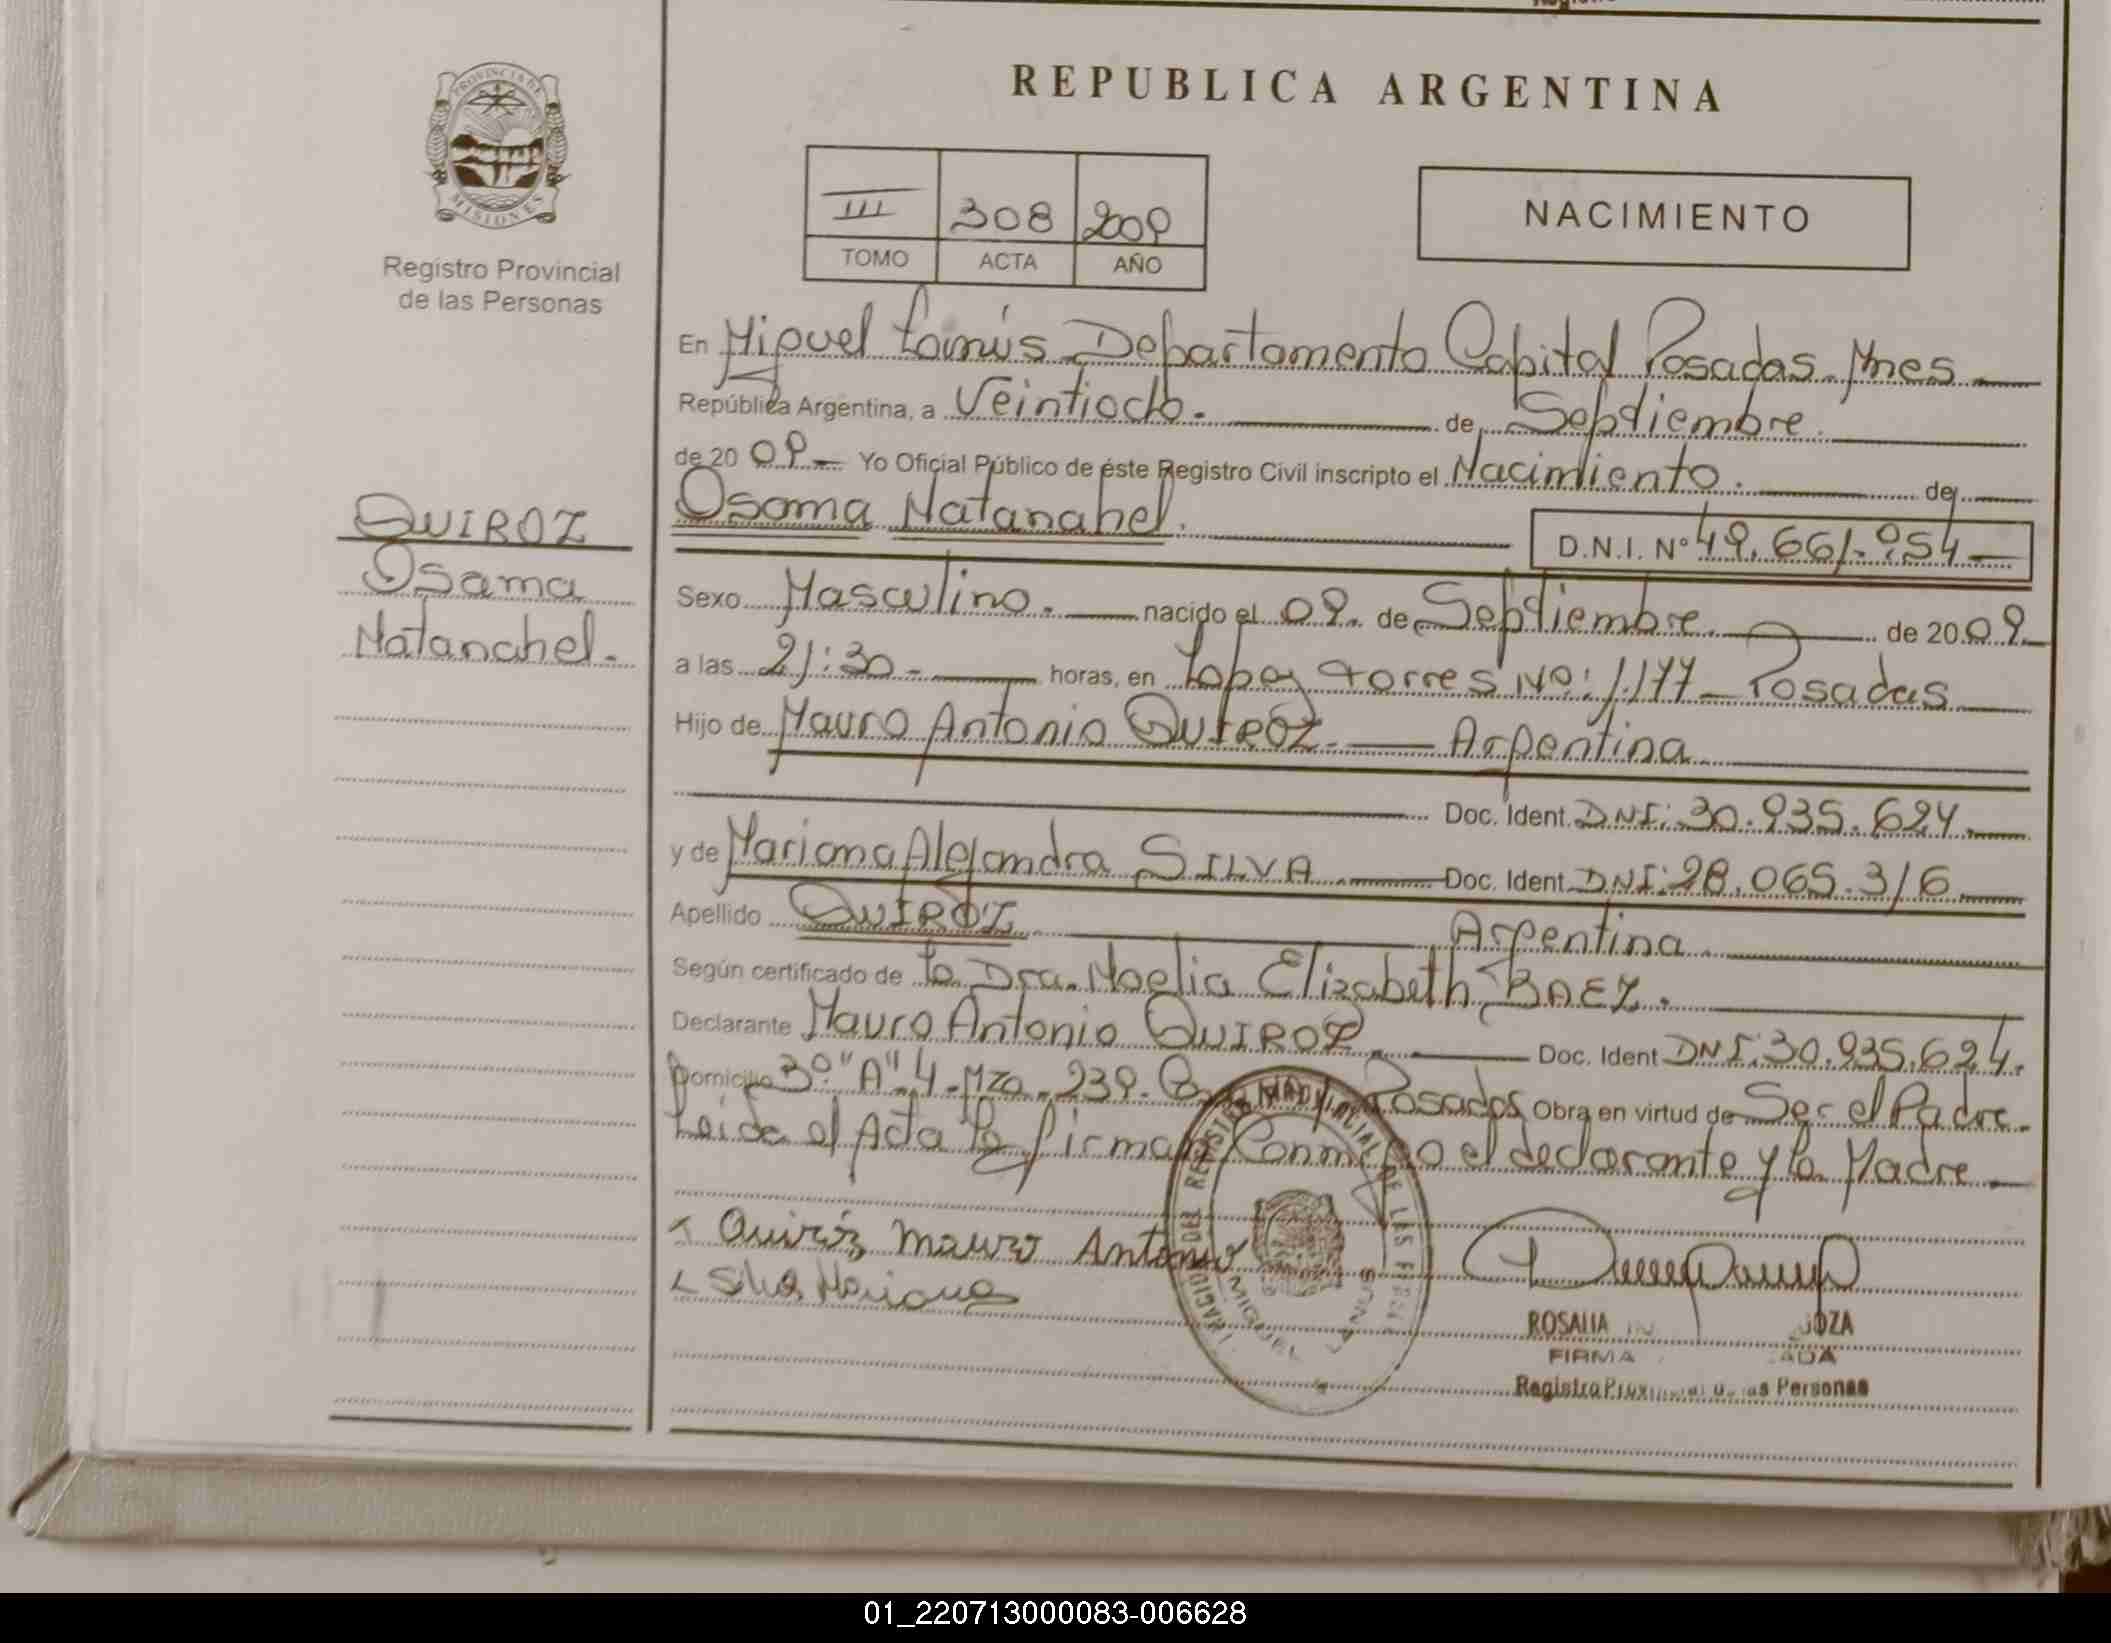 PROVINCIA DE
MISIONES
Registro Provincial
de las Personas
QUIROZ
Osama
Natanahel.
REPUBLICA ARGENTINA
III 308 2009
TOMO ACTA AÑO
NACIMIENTO
En Miguel Lanús Departamento Capital Posadas Mnes
República Argentina, a Veintiocho. de Septiembre.
de 20 09 Yo Oficial Público de éste Registro Civil inscripto el Nacimiento. de
Osama Natanahel. D.N.I. Nº 49.661.954
Sexo Masculino. nacido el 09. de Septiembre. de 20 09
a las 21:30 horas, en Lopez torres Nº: 1.177 Posadas
Hijo de Mauro Antonio QUIROZ Argentina
Doc. Ident. DNI: 30.935.624
y de Mariana Alejandra SILVA Doc. Ident. DNI: 28.065.316
Apellido QUIROZ Argentina
Según certificado de la Dra. Noelia Elizabeth BAEZ.
Declarante Mauro Antonio QUIROZ Doc. Ident DNI: 30.935.624.
Domicilio 3º "A" 4 Mza. 239. Posadas Obra en virtud de Ser el Padre.
Leida el Acta la firman Conmigo el declarante y la Madre
Quiróz Mauro Antonio
Silva Mariana
MIGUEL LANUS
ROSALIA
FIRMA
Registro Provincial de las Personas
01_220713000083-006628